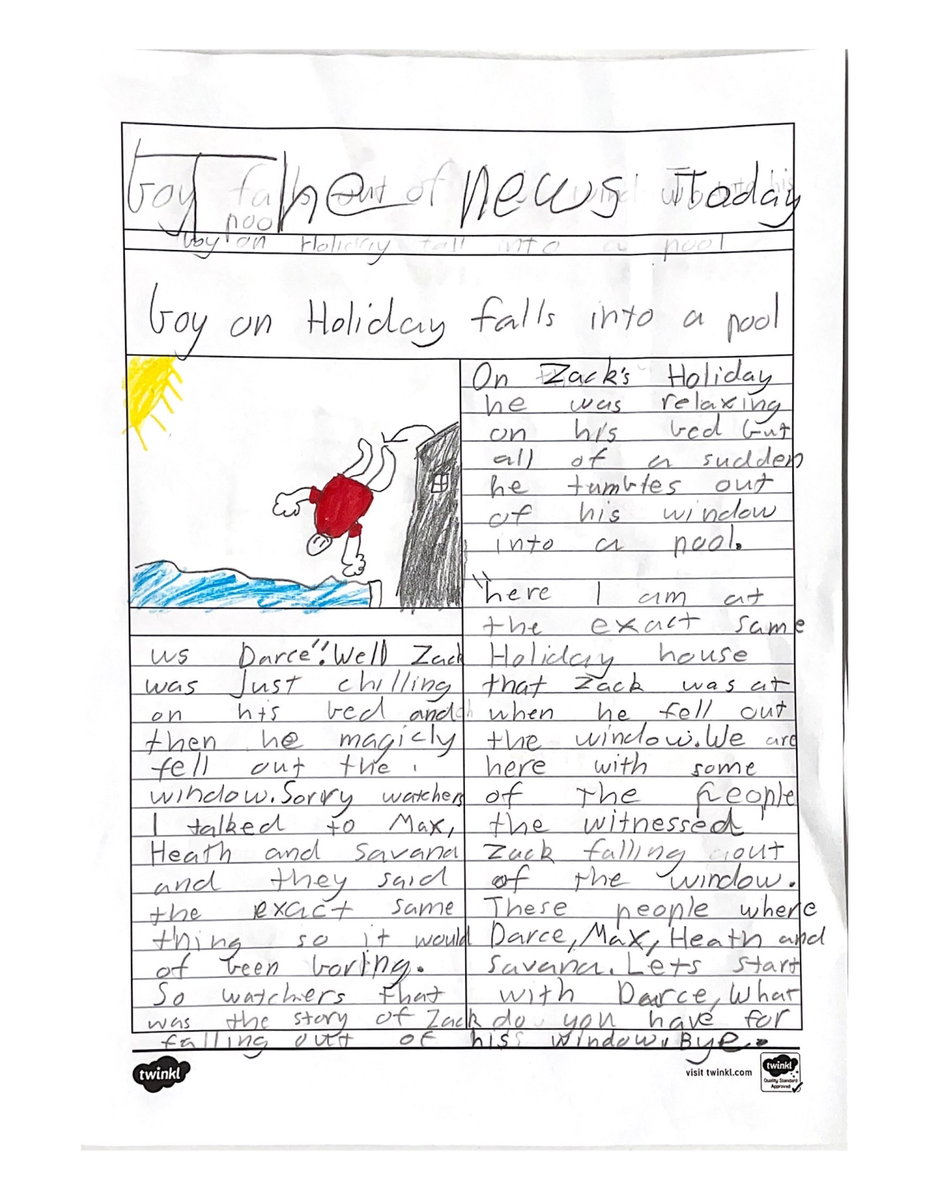 The news Today
boy on Holiday fall into a pool
boy on Holiday falls into a pool
On Zack's Holiday
he was relaxing
on his bed but
all of a sudden
he tumbles out
of his window
into a pool.
"here I am at
the exact same
Holiday house
that Zack was at
when he fell out
the window. We are
here with some
of the people
the witnessed
Zack falling out
of the window.
These people where
Darce, Max, Heath and
Savana. Lets start
with Darce, What
do you have for
us Darce". Well Zack
was Just chilling
on his bed and
then he magicly
fell out the
window. Sorry watchers
I talked to Max,
Heath and Savana
and they said
the exact same
thing so it would
of been boring.
So watchers that
was the story of Zack
falling out of his window. Bye.
twinkl
visit twinkl.com
twinkl
Quality Standard
Approved